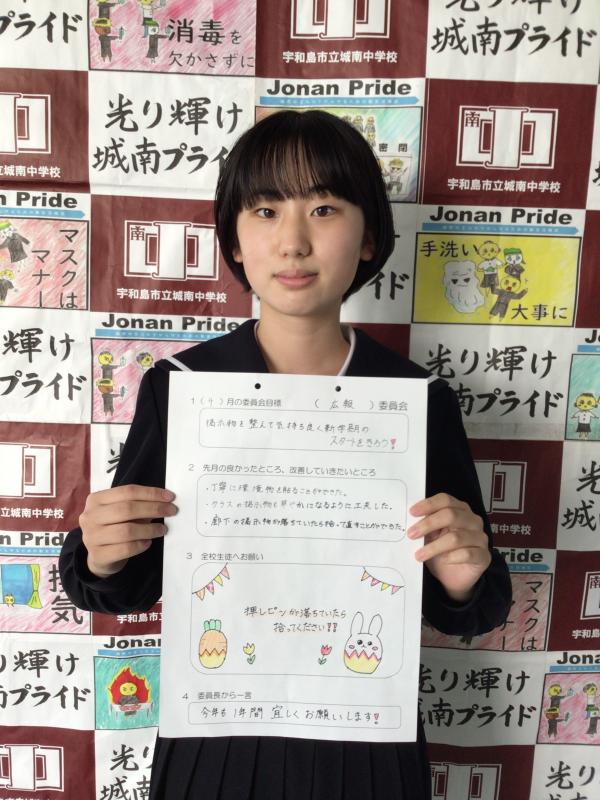 消毒を
欠かさずに
光り輝け
城南プライド
Jonan Pride
光り輝け
城南プライド
南
中
宇和島市立城南中学校
光り輝け
城南プライド
Jonan Pride
密閉
南
中
宇和島市立城南中学校
立城南中学校
マスクは
マナー
南
中
宇和島市立城南中学校
Jonan Pride
手洗い
大事に
光り輝け
城南プライド
Jonan Pride
光り輝け
城南プライド
1 ( 4 ) 月の委員会目標 ( 広報 ) 委員会
掲示物を整えて気持ち良く新学期の
スタートをきろう!
2 先月の良かったところ、改善していきたいところ
・丁寧に環境物を貼ることができた。
・クラスの掲示物も華やかになるように工夫した。
・廊下の掲示物が落ちていたら拾って直すことができた。
3 全校生徒へお願い
押しピンが落ちていたら
拾ってください!!
4 委員長から一言
今年も1年間宜しくお願いします!
換気
マスクは
マナー
宇和島市
光り輝け
城南プライド
Jonan Pride
光り輝け
城南プライド
光り輝け
城南プライド
Jonan Pride
光り輝け